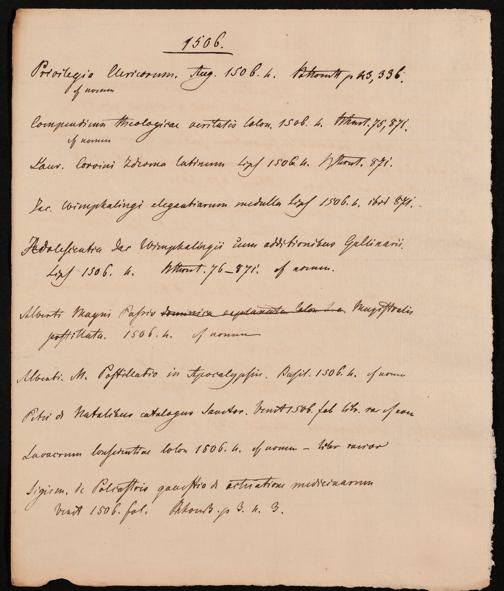 1506.
Privilegia Clericorum. Aug. 1506. 4. p 43, 336.
cf nomen
Compendium theologicae veritatis Colon. 1506. 4. 75, 871.
cf nomen
Laur. Corvini Idioma latinum Lips 1506. 4. 871.
Jac. Wimphalingi elegantiarum medulla Lips 1506. 4. ibid 871.
Adolescentia Jac Wimphalingii cum additionibus Gallinarii.
Lips 1506. 4. 76–871. cf nomen.
Alberti Magni Passio dominica explanata Colon Magistralis
postillata. 1506. 4. cf nomen
Alberti. M. Postillatio in Apocalypsin. Basil. 1506. 4. cf nomen
Petri de Natalibus catalogus Sanctor. Venet 1506. fol lib. rar cf nom
Lavacrum conscientiae Colon 1506. 4. cf nomen – liber rarior
Sigism. de Polcastris quaestio de actuatione medicinarum
Venet 1506. fol. p 3. n. 3.